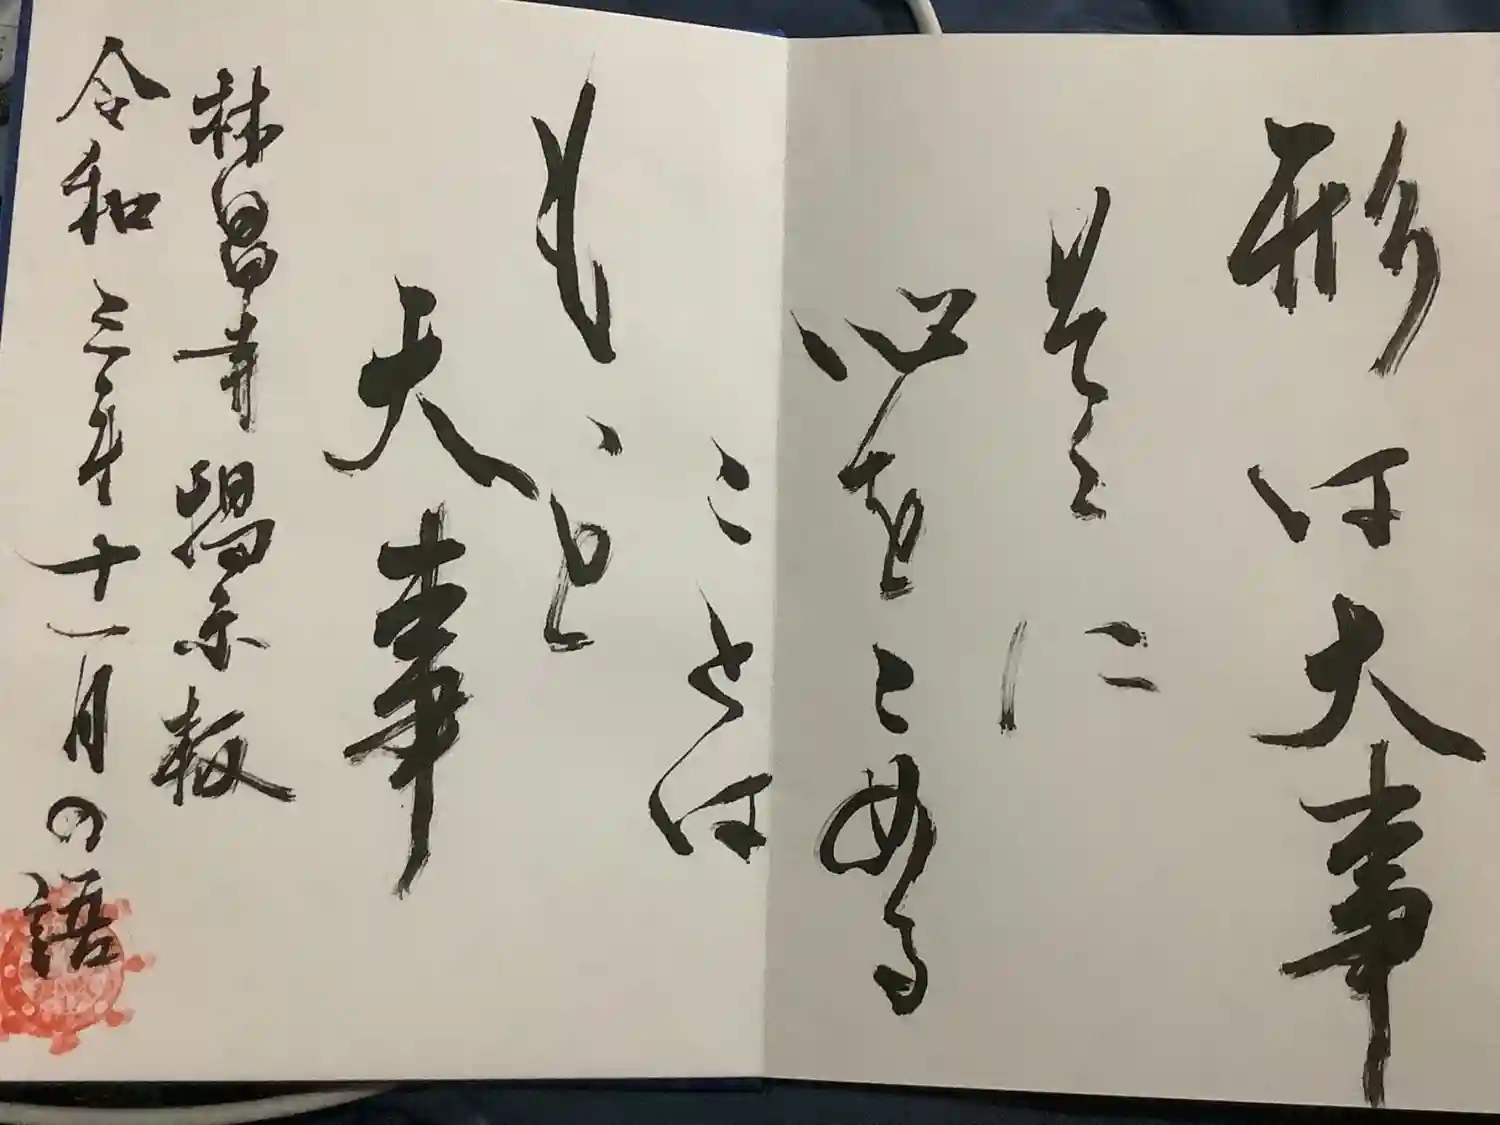 形は大事
そこに
心をこめる
ことは
もっと
大事
林昌寺 掲示板
令和三年十一月の語